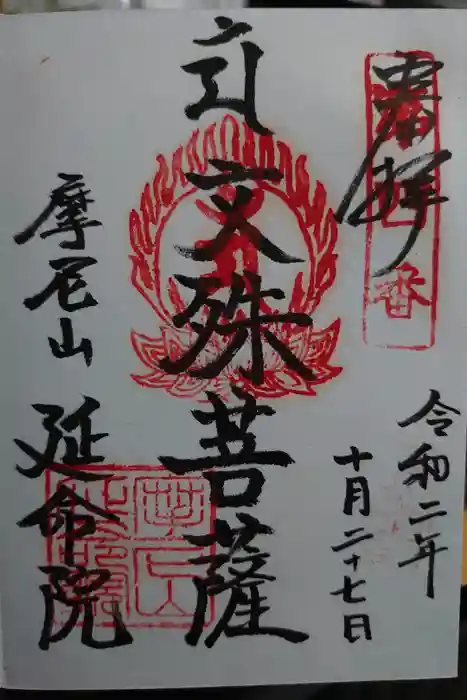 奉拝
令和二年
十月二十七日
文殊菩薩
摩尼山
延命院